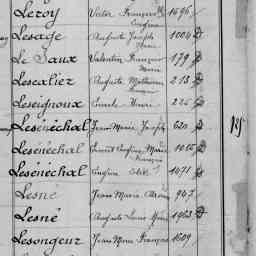 Leroy Victor François 1696
Eugène
Lesage Auguste Joseph 1004
Marie
Le Saux Valentin François 179
Marie
Lescalier Auguste Mathurin 213
François
Leseignoux Marie 225
Lesénéchal Jean Marie Joseph 620
Lesénéchal Eugène Marie 1015
François
Lesénéchal Eugène 1471
Lesné Jean Marie 947
Lesné Auguste Louis Marie 1963
Lesongeur Jean Marie François 1609